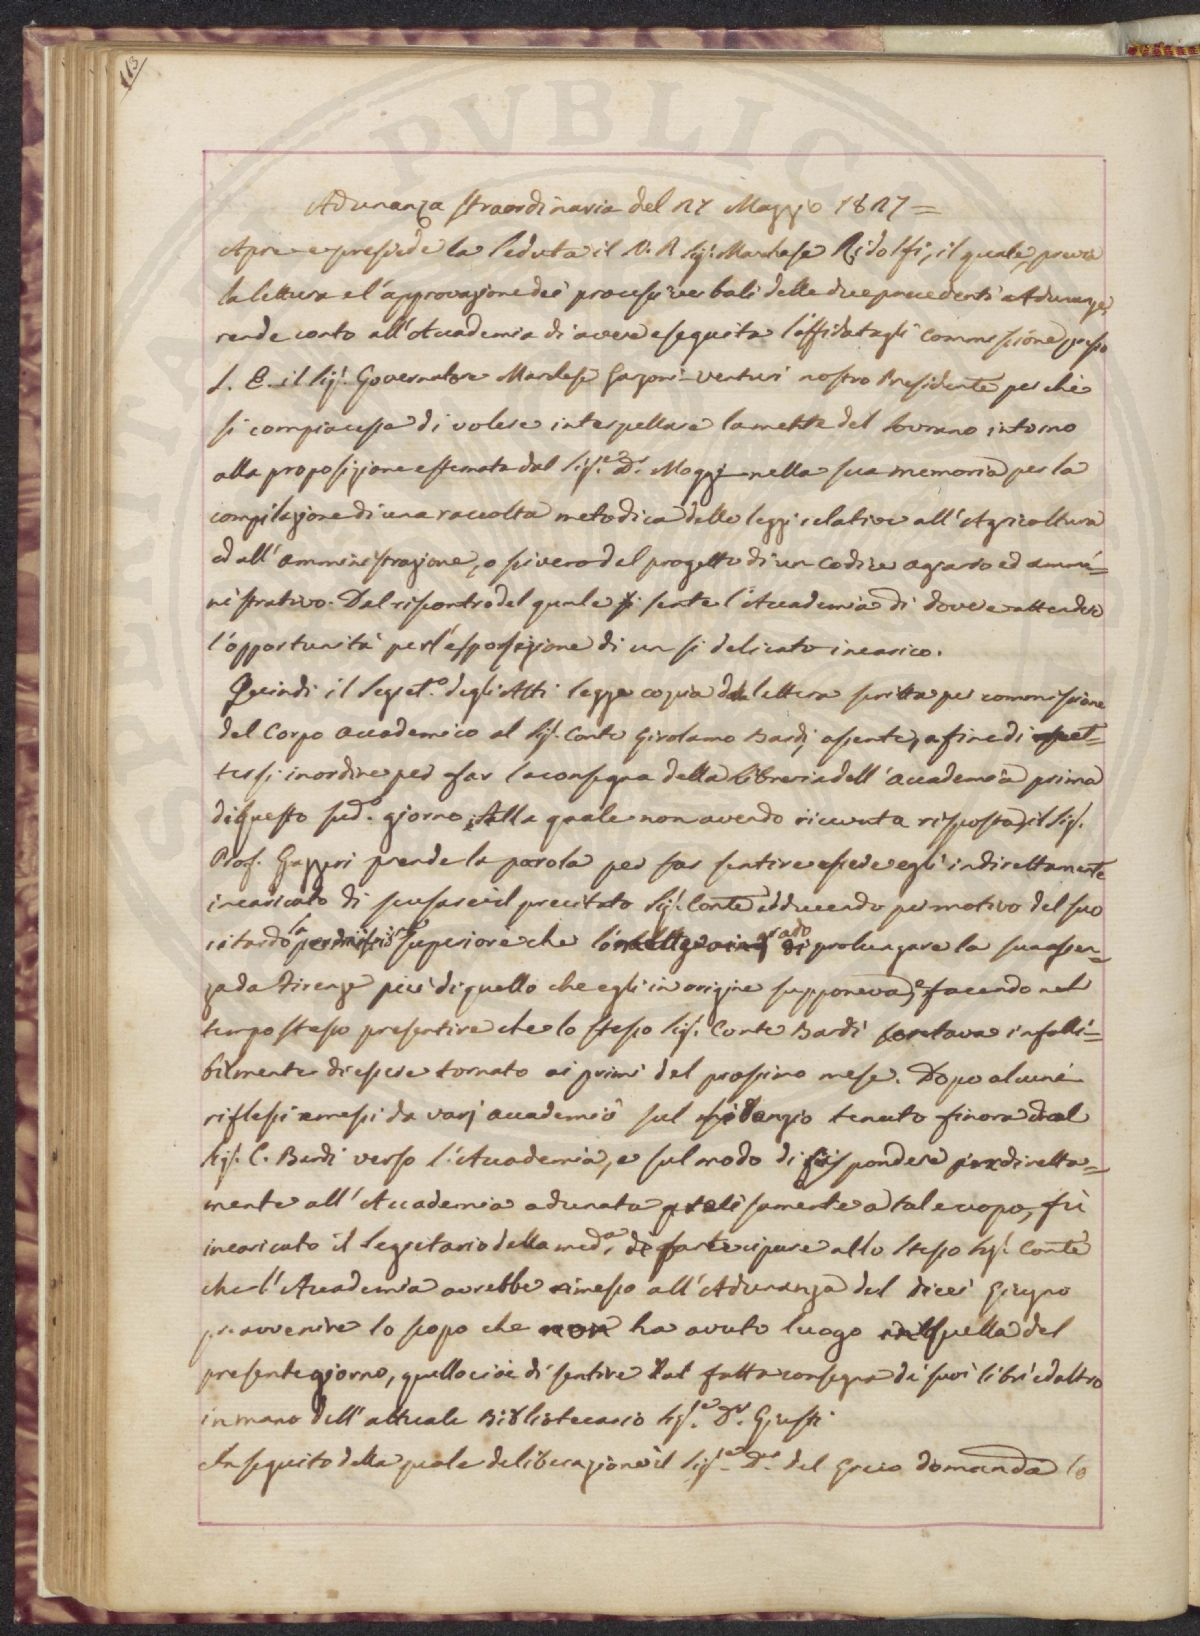 113
Adunanza straordinaria del 27 Maggio 1827 =
Apre e presiede la seduta il V. P. Sig. Marchese Ridolfi, il quale, previa
la lettura e l'approvazione dei processi verbali delle due precedenti Adunanze,
rende conto all'Accademia di avere eseguita l'affidatagli commissione presso
S. E. il Sig. Governatore Marchese Garzoni-Venturi nostro Presidente perchè
si compiacesse di volere interpellare la mente del Sovrano intorno
alla proposizione esternata dal Sig.e D.r Moggi nella sua memoria per la
compilazione di una raccolta metodica delle leggi relative all'Agricoltura
ed all'amministrazione, o sivvero del progetto di un codice agrario ed ammi=
nistrativo. Dal riscontro del quale si sente l'Accademia di dovere attendere
l'opportunità per l'esposizione di un sì delicato incarico.
Quindi il Segret.o degli Atti legge copia della lettera scritta per commissione
del Corpo accademico al Sig. Conte Girolamo Bardi, assente, afine di met=
tersi in ordine per far la consegna della libreria dell'accademia prima
di questo sud.o giorno. Alla quale non avendo ricevuta risposta, il Sig.
Prof. Gazzeri prende la parola per far sentire essere egli indirettamente
incaricato di scusare il precitato Sig. Conte adducendo per motivo del suo
ritardo la superiore che di prolungare la sua assen=
za da Firenze più di quello che egli in origine supponeva, e facendo nel
tempo stesso presentire che lo stesso Sig. Conte Bardi contava infalli=
bilmente di essere tornato ai primi del prossimo mese. Dopo alcuni
riflessi emessi da varj accademici sul silenzio tenuto finora dal
Sig. C. Bardi verso l'Accademia, e sul modo di rispondere indiretta=
mente all'Accademia adunata precisamente a tale uopo, fù
incaricato il Segretario della med.a di partecipare allo stesso Sig. Conte
che l'Accademia avrebbe rimesso all'Adunanza del dieci Giugno
pr. avvenire lo scopo che non ha avuto luogo in quella del
presente giorno, quello cioè di sentire tal fatta consegna di suoi libri ed altro
in mano dell'attuale Bibliotecario Sig.e D.r Giusti
In seguito della quale deliberazione il Sig.e D.r del Greco domanda lo